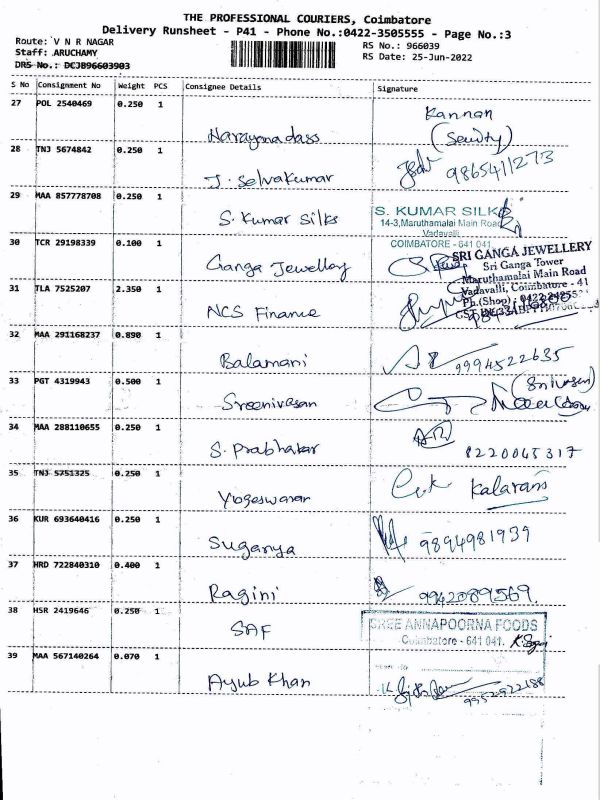 THE PROFESSIONAL COURIERS, Coimbatore
Delivery Runsheet - P41 - Phone No.:0422-3505555 - Page No.:3
Route: V N R NAGAR
RS No.: 966039
Staff: ARUCHAMY
RS Date: 25-Jun-2022
DRS No.: DCJB96603903
S No Consignment No Weight PCS Consignee Details Signature
27 POL 2540469 0.250 1
Kannan
Narayanadass
28 TNJ 5674842 0.250 1
9865411273
J. Selvakumar
29 MAA 857778708 0.250 1
S. Kumar Silks
S. KUMAR SILKS
14-3, Maruthamalai Main Road
Vadavalli
COIMBATORE - 641 041
30 TCR 29198339 0.100 1
Ganga Jewellery
SRI GANGA JEWELLERY
Sri Ganga Tower
Maruthamalai Main Road
Vadavalli, Coimbatore - 41
31 TLA 7525207 2.350 1
NCS Finance
32 MAA 291168237 0.890 1
Balamani
9994522635
33 PGT 4319943 0.500 1
Sreenivasan
34 MAA 288110655 0.250 1
S. Prabhakar
8220045317
35 TNJ 5751325 0.250 1
Yogeswaran
36 KUR 693640416 0.250 1
Suganya
9894981939
37 HRD 722840310 0.400 1
Ragini
9942089569.
38 HSR 2419646 0.250 1
SAF
SREE ANNAPOORNA FOODS
Coimbatore - 641 041.
39 MAA 567140264 0.070 1
Ayub Khan
9952922188